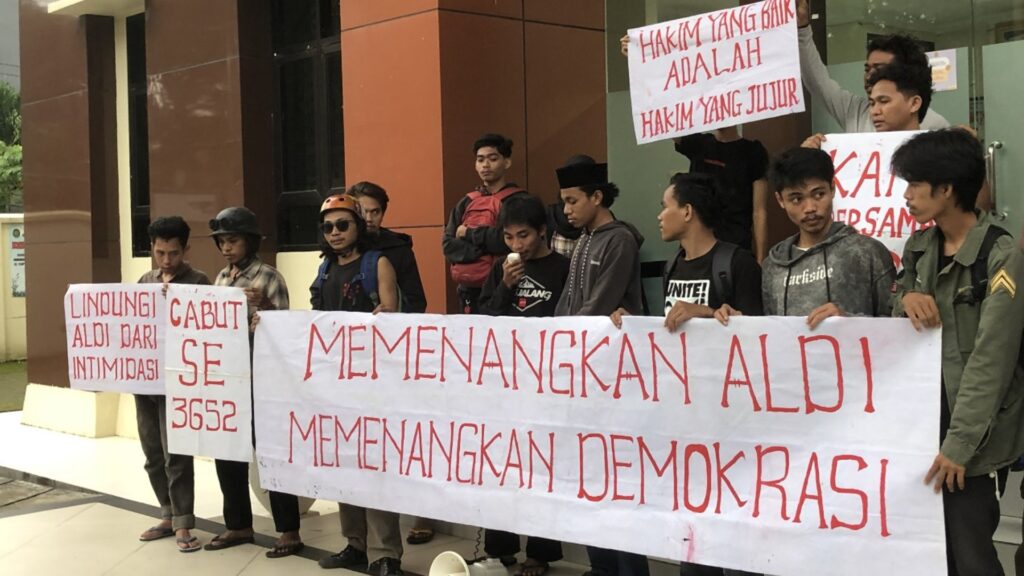 HAKIM YANG BAIK
ADALAH
HAKIM YANG JUJUR
LINDUNGI
ALDI DARI
INTIMIDASI
CABUT
SE
3652
MEMENANGKAN ALDI
MEMENANGKAN DEMOKRASI
UNITE!